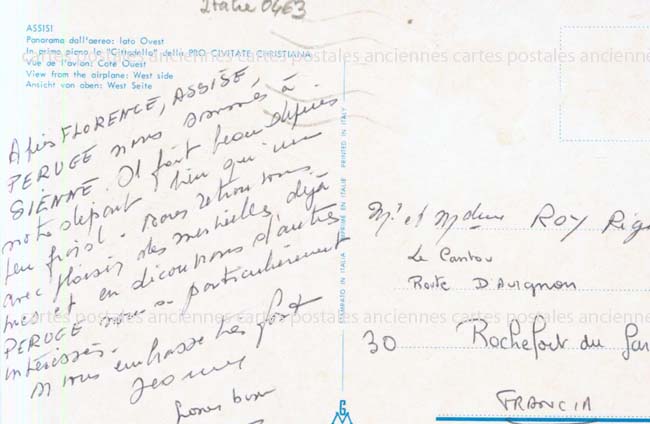 Italie 0463
ASSISI
Panorama dall'aereo: lato Ovest
In primo piano la "Cittadella" della PRO CIVITATE CHRISTIANA
Vue de l'avion: Coté Ouest
View from the airplane: West side
Ansicht von oben: West Seite
cartes postales anciennes cartes postales anciennes cartes postales
Après FLORENCE, ASSISE,
PERUGE nous sommes à
SIENNE. Il fait beau depuis
notre départ bien qu'un
peu froid. Nous retrouvons
avec plaisir des merveilles déjà
vues et en découvrons d'autres
PERUGE nous a particulièrement
intéressés.
Je vous embrasse très fort
bons
STAMPATO IN ITALIA IMPRIMÉ EN ITALIE PRINTED IN ITALY
Mr et Mdme ROY Rig
Le Cantou
Route D'Avignon
cartes postales anciennes cartes postales anciennes cartes postales
30 Rochefort du Gar
FRANCIA